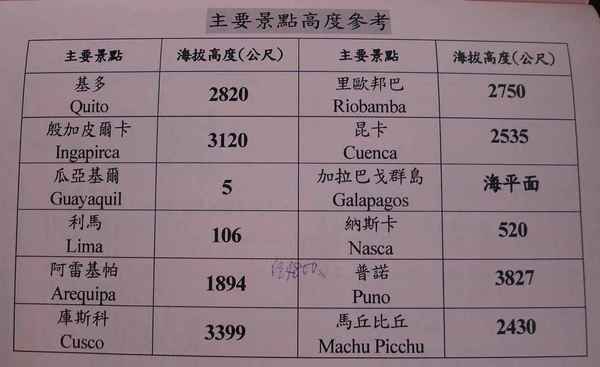 主要景點高度參考
主要景點 海拔高度(公尺) 主要景點 海拔高度(公尺)
基多 里歐邦巴
Quito 2820 Riobamba 2750
般加皮爾卡 昆卡
Ingapirca 3120 Cuenca 2535
瓜亞基爾 加拉巴戈群島
Guayaquil 5 Galapagos 海平面
利馬 納斯卡
Lima 106 Nasca 520
阿雷基帕 普諾
Arequipa 1894 Puno 3827
庫斯科 馬丘比丘
Cusco 3399 Machu Picchu 2430